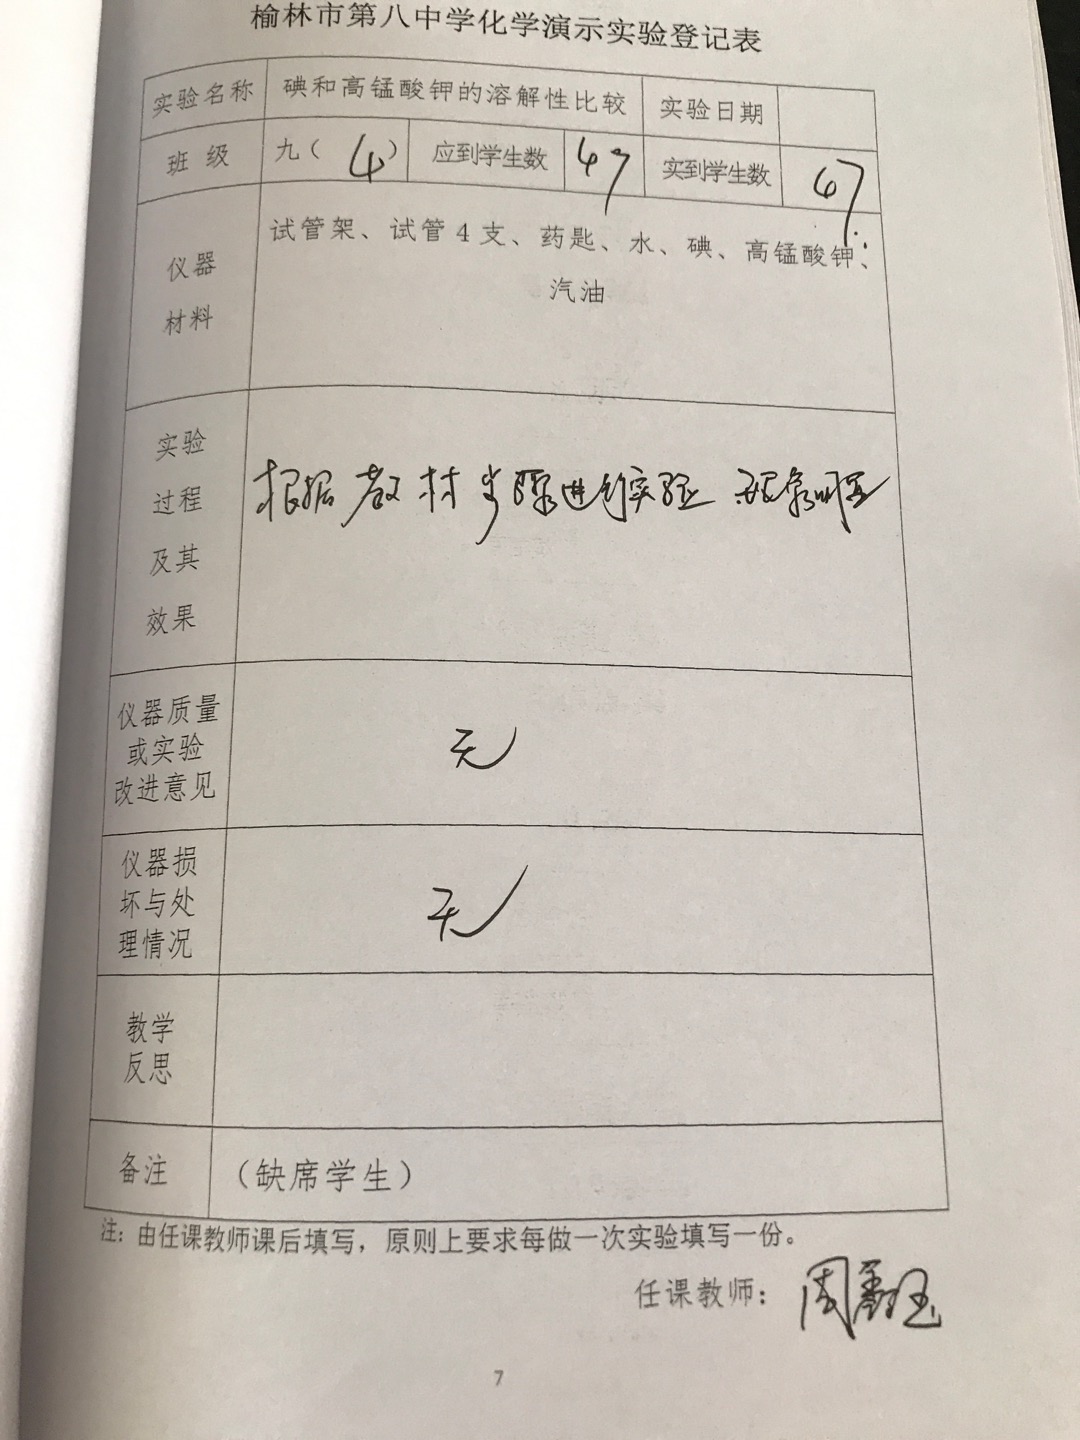 榆林市第八中学化学演示实验登记表
实验名称 碘和高锰酸钾的溶解性比较 实验日期
班 级 九（ 4 ） 应到学生数 47 实到学生数 47
仪器
材料
试管架、试管4支、药匙、水、碘、高锰酸钾、
汽油
实验
过程
及其
效果
根据教材步骤进行实验 现象明显
仪器质量
或实验
改进意见
无
仪器损
坏与处
理情况
无
教学
反思
备注 （缺席学生）
注：由任课教师课后填写，原则上要求每做一次实验填写一份。
任课教师： 周
7